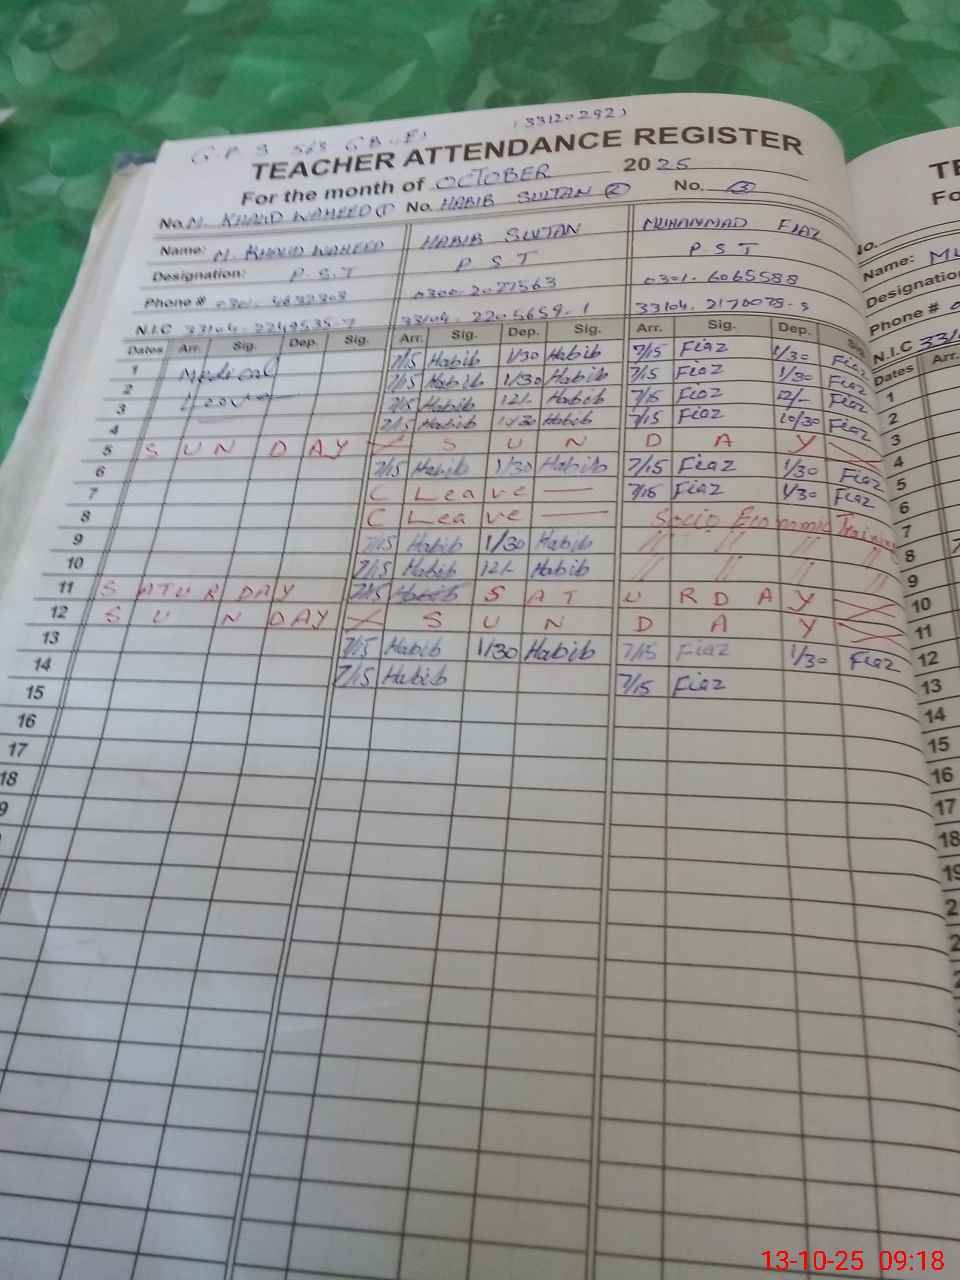 (33120292)
TEACHER ATTENDANCE REGISTER
For the month of OCTOBER 2025
No. M. KHALID WAHEED (1) No. HABIB SULTAN (2) No. (3)
Name: M. KHALID WAHEED HABIB SULTAN MUHAMMAD FIAZ
Designation: P.S.T P S T P S T
Phone # 0300.2077563 0301.6065588
N.I.C 33104. 33104.2205659.1 33104.2170079.
Dates Arr. Sig. Dep. Sig. Arr. Sig. Dep. Sig. Arr. Sig. Dep. Sig.
1 Medical 7/15 Habib 1/30 Habib 7/15 Fiaz 1/30 Fiaz
2 Leave 7/15 Habib 1/30 Habib 7/15 Fiaz 1/30 Fiaz
3 7/15 Habib 12/- Habib 7/15 Fiaz 12/- Fiaz
4 7/15 Habib 10/30 Habib 7/15 Fiaz 10/30 Fiaz
5 S U N D A Y S U N D A Y
6 7/15 Habib 1/30 Habib 7/15 Fiaz 1/30 Fiaz
7 C Leave — 7/15 Fiaz 1/30 Fiaz
8 C Leave — Socio Economic Training
9 7/15 Habib 1/30 Habib // // // //
10 7/15 Habib 12/- Habib // // // //
11 S A T U R D A Y 7/15 Habib S A T U R D A Y
12 S U N D A Y S U N D A Y
13 7/15 Habib 1/30 Habib 7/15 Fiaz 1/30 Fiaz
14 7/15 Habib 7/15 Fiaz
15
16
17
18
9
TE
Fo
No.
Name: MU
Designation
Phone # 0
N.I.C 331
Dates Arr.
1
2
3
4
5
6
7
8
9
10
11
12
13
14
15
16
17
18
19
2
2
13-10-25 09:18